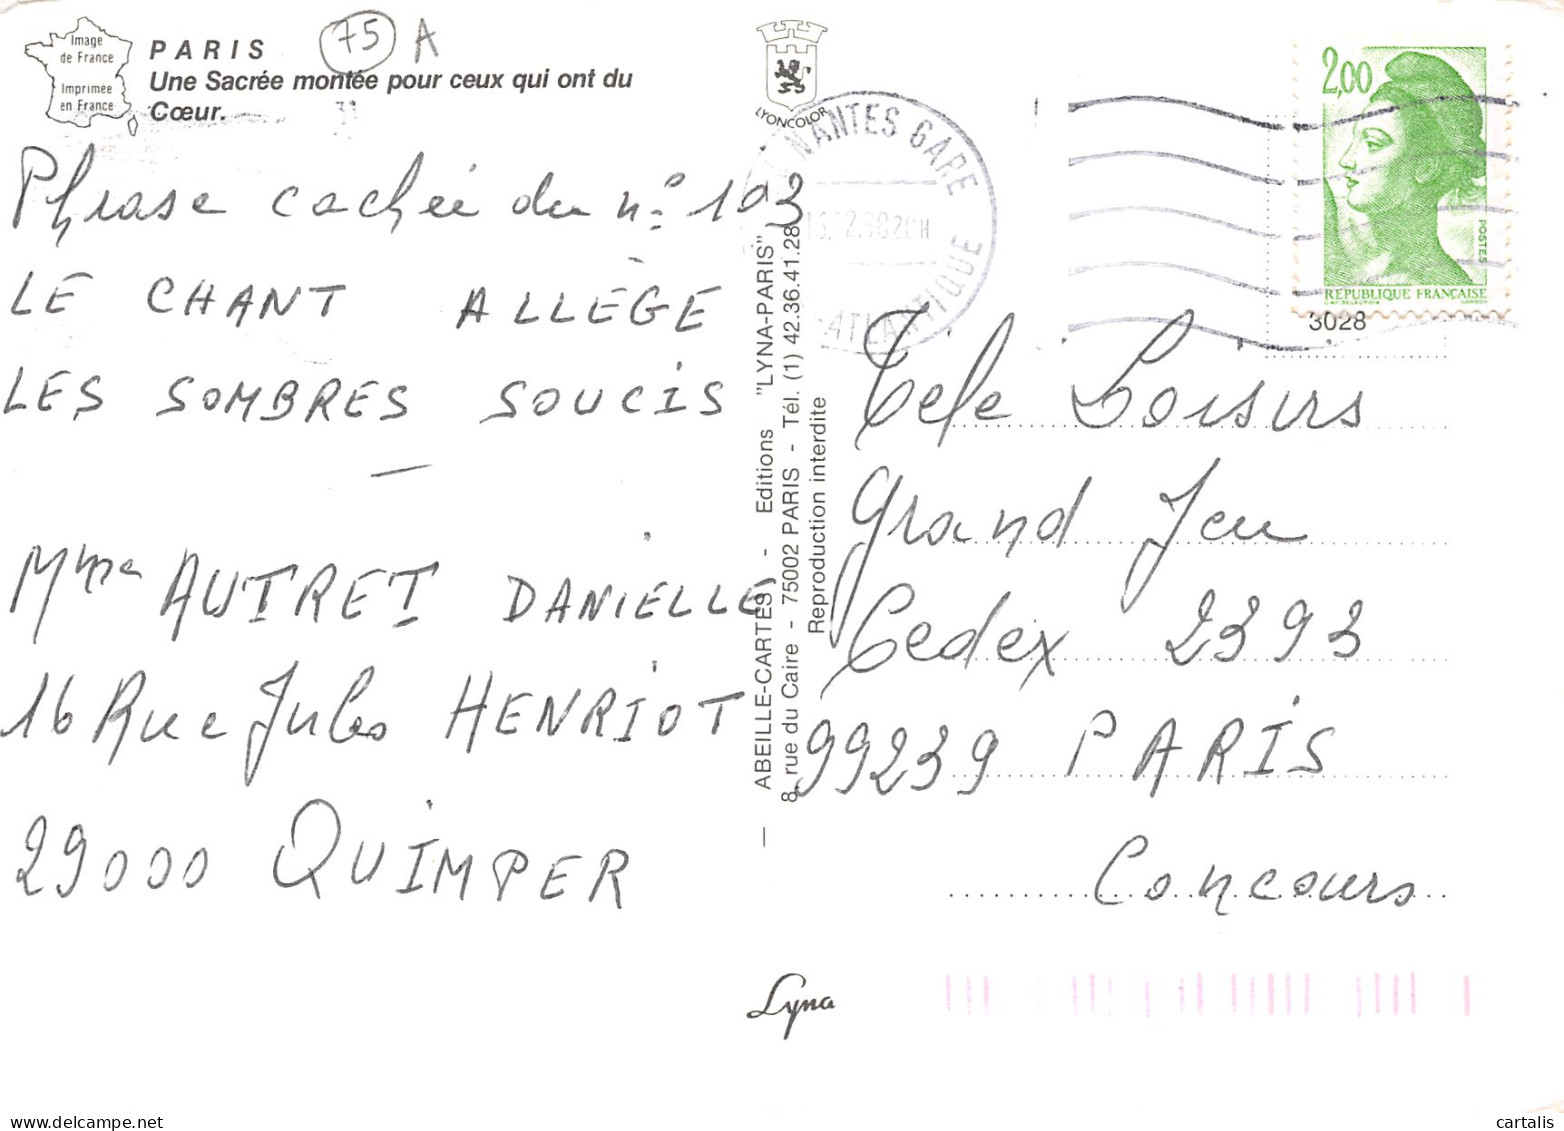 Image
de France
Imprimée
en France
PARIS
Une Sacrée montée pour ceux qui ont du
Cœur.
75 A
Phrase cachée du n° 103
LE CHANT ALLÈGE
LES SOMBRES SOUCIS
Mme AUTRET DANIELLE
16 Rue Jules HENRIOT
29000 QUIMPER
LYONCOLOR
ABEILLE-CARTES - Editions "LYNA-PARIS"
8, rue du Caire - 75002 PARIS - Tél. (1) 42.36.41.28
Reproduction interdite
Lyna
NANTES GARE
ATLANTIQUE
2,00
POSTES
RÉPUBLIQUE FRANÇAISE
3028
Tele Loisirs
Grand Jeu
Cedex 2393
99239 PARIS
Concours
© cartalis